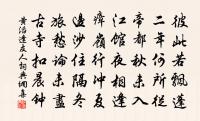 彼此若飄蓬
二年何所從
帝都秋未入
江館夜相逢
瘴嶺行沖夏
邊沙住隔冬
旅愁論未盡
古寺扣晨鐘
黃滔逢友人詞典網集